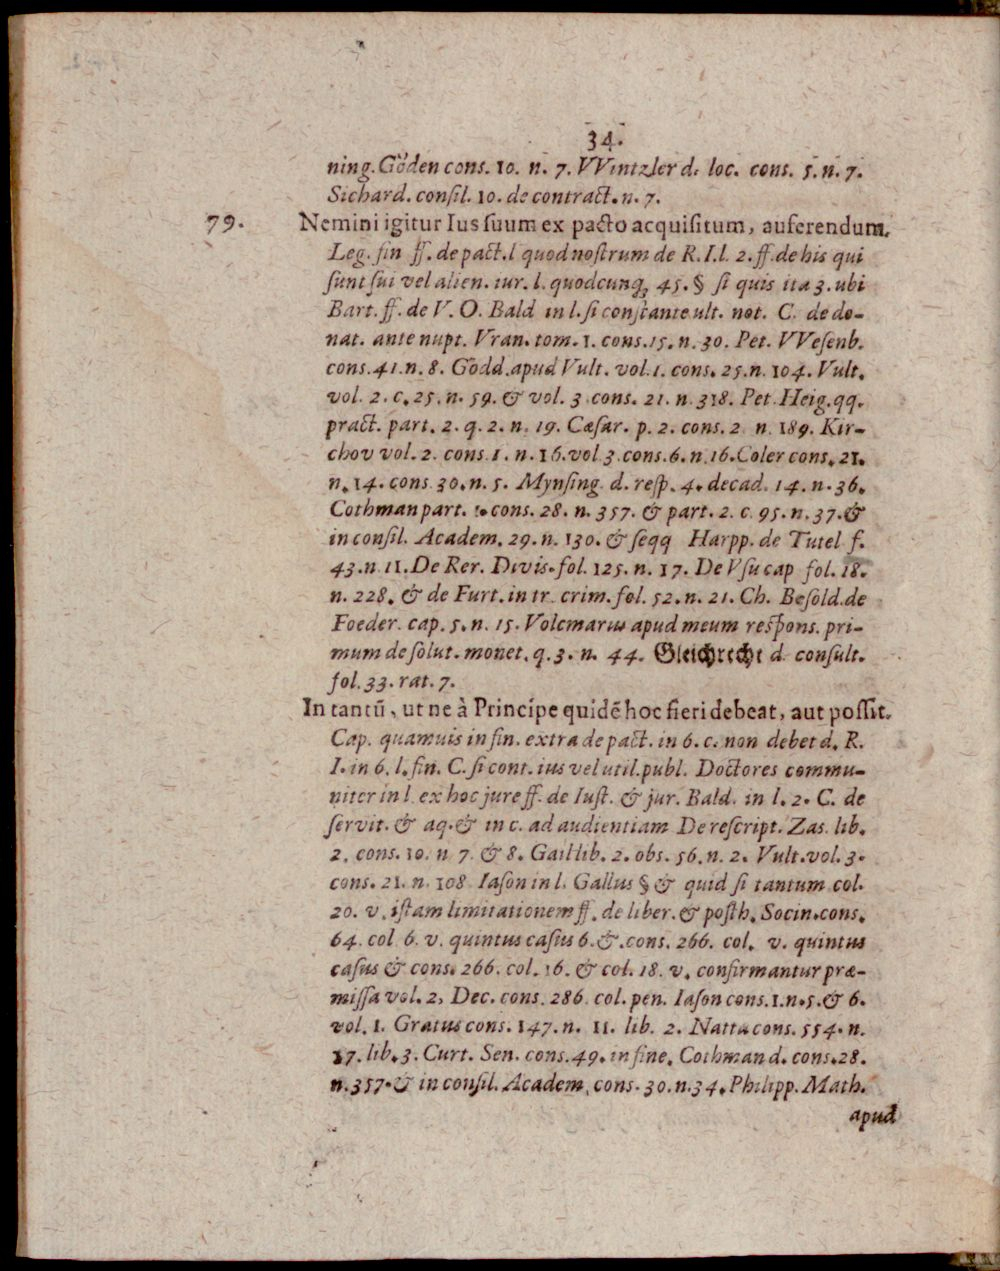 34.
ning. Göden cons. 10. n. 7. VVintzler d. loc. cons. 5. n. 7.
Sichard. consil. 10. de contract. n. 7.
79. Nemini igitur Ius suum ex pacto acquisitum, auferendum.
Leg. fin ff. de pact. l quod nostrum de R. I. l. 2. ff. de his qui
sunt sui vel alien. iur. l. quodcunq; 45. § si quis ita 3. ubi
Bart. ff. de V. O. Bald in l. si constante ult. not. C. de do-
nat. ante nupt. Vran. tom. 1. cons. 15. n. 30. Pet. VVesenb.
cons. 41. n. 8. Gödd. apud Vult. vol. 1. cons. 25. n. 104. Vult.
vol. 2. c. 25. n. 59. & vol. 3 cons. 21. n. 318. Pet. Heig. qq.
pract. part. 2. q. 2. n. 19. Cæsar. p. 2. cons. 2 n. 189. Kir-
chov vol. 2. cons. 1. n. 16. vol 3. cons. 6. n. 16. Coler cons. 21.
n. 14. cons 30. n. 5. Mynsing. d. resp. 4. decad. 14. n. 36.
Cothman part. 1. cons. 28. n. 357. & part. 2. c. 95. n. 37. &
in consil. Academ. 29. n. 130. & seqq Harpp. de Tutel f.
43. n 11. De Rer. Divis. fol. 125. n. 17. De Vsu cap fol. 18.
n. 228. & de Furt. in tr. crim. fol. 52. n. 21. Ch. Besold. de
Foeder. cap. 5. n. 15. Volcmarus apud meum respons. pri-
mum de solut. monet. q. 3. n. 44. Gleichrecht d. consult.
fol. 33. rat. 7.
In tantū, ut ne à Principe quidē hoc fieri debeat, aut possit.
Cap. quamuis in fin. extra de pact. in 6. c. non debet d. R.
I. in 6. l. fin. C. si cont. ius vel util. publ. Doctores commu-
niter in l ex hoc jure ff. de Iust. & jur. Bald. in l. 2. C. de
servit. & aq. & in c. ad audientiam De rescript. Zas. lib.
2. cons. 10. n 7. & 8. Gail lib. 2. obs. 56. n. 2. Vult. vol. 3.
cons. 21. n. 108 Iason in l. Gallus § & quid si tantum col.
20. v. istam limitationem ff. de liber. & posth. Socin. cons.
64. col 6. v. quintus casus 6. &. cons. 266. col. v. quintus
casus & cons. 266. col. 16. & col. 18. v. confirmantur præ-
missa vol. 2, Dec. cons. 286. col. pen. Iason cons. 1. n. 5. & 6.
vol. 1. Gratus cons. 147. n. 11. lib. 2. Natta cons. 554. n.
17. lib. 3. Curt. Sen. cons. 49. in fine. Cothman d. cons. 28.
n. 357. & in consil. Academ. cons. 30. n. 34. Philipp. Math.
apud